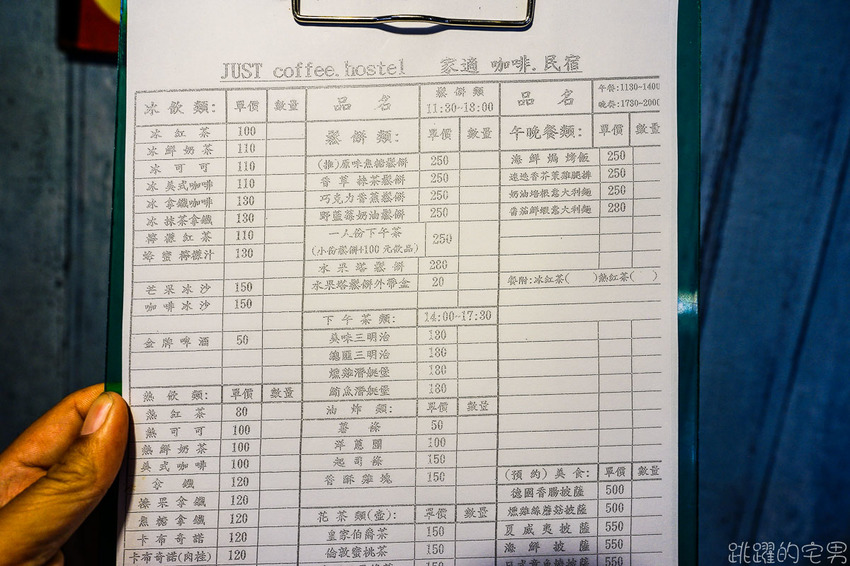 JUST coffee.hostel 家適 咖啡.民宿
冰飲類: 單價 數量
冰紅茶 100
冰鮮奶茶 110
冰可可 110
冰美式咖啡 110
冰拿鐵咖啡 130
冰抹茶拿鐵 130
檸檬紅茶 110
蜂蜜檸檬汁 130
芒果冰沙 150
咖啡冰沙 150
金牌啤酒 50
熱飲類: 單價 數量
熱紅茶 80
熱可可 100
熱鮮奶茶 100
美式咖啡 100
拿鐵 120
榛果拿鐵 120
焦糖拿鐵 120
卡布奇諾 120
卡布奇諾(肉桂) 120
品名 鬆餅類 11:30~18:00
鬆餅類: 單價 數量
(推)原味焦糖鬆餅 250
香草抹茶鬆餅 250
巧克力香蕉鬆餅 250
野藍莓奶油鬆餅 250
一人份下午茶
(小份鬆餅+100元飲品) 250
水果塔鬆餅 280
水果塔鬆餅外帶盒 20
下午茶類: 14:00~17:30
美味三明治 180
總匯三明治 180
燻雞潛艇堡 180
鮪魚潛艇堡 180
油炸類: 單價 數量
薯條 50
洋蔥圈 100
起司條 150
香酥雞塊 150
花茶類(壺): 單價 數量
皇家伯爵茶 150
倫敦蜜桃茶 150
品名 午餐:1130~1400
晚餐:1730~2000
午晚餐類: 單價 數量
海鮮焗烤飯 250
迷迭香芥茉雞腿排 250
奶油培根意大利麵 250
番茄鮮蝦意大利麵 280
餐附:冰紅茶( )熱紅茶( )
(預約)美食: 單價 數量
德國香腸披薩 500
燻雞絲蘑菇披薩 500
夏威夷披薩 550
海鮮披薩 550
550
跳躍的宅男